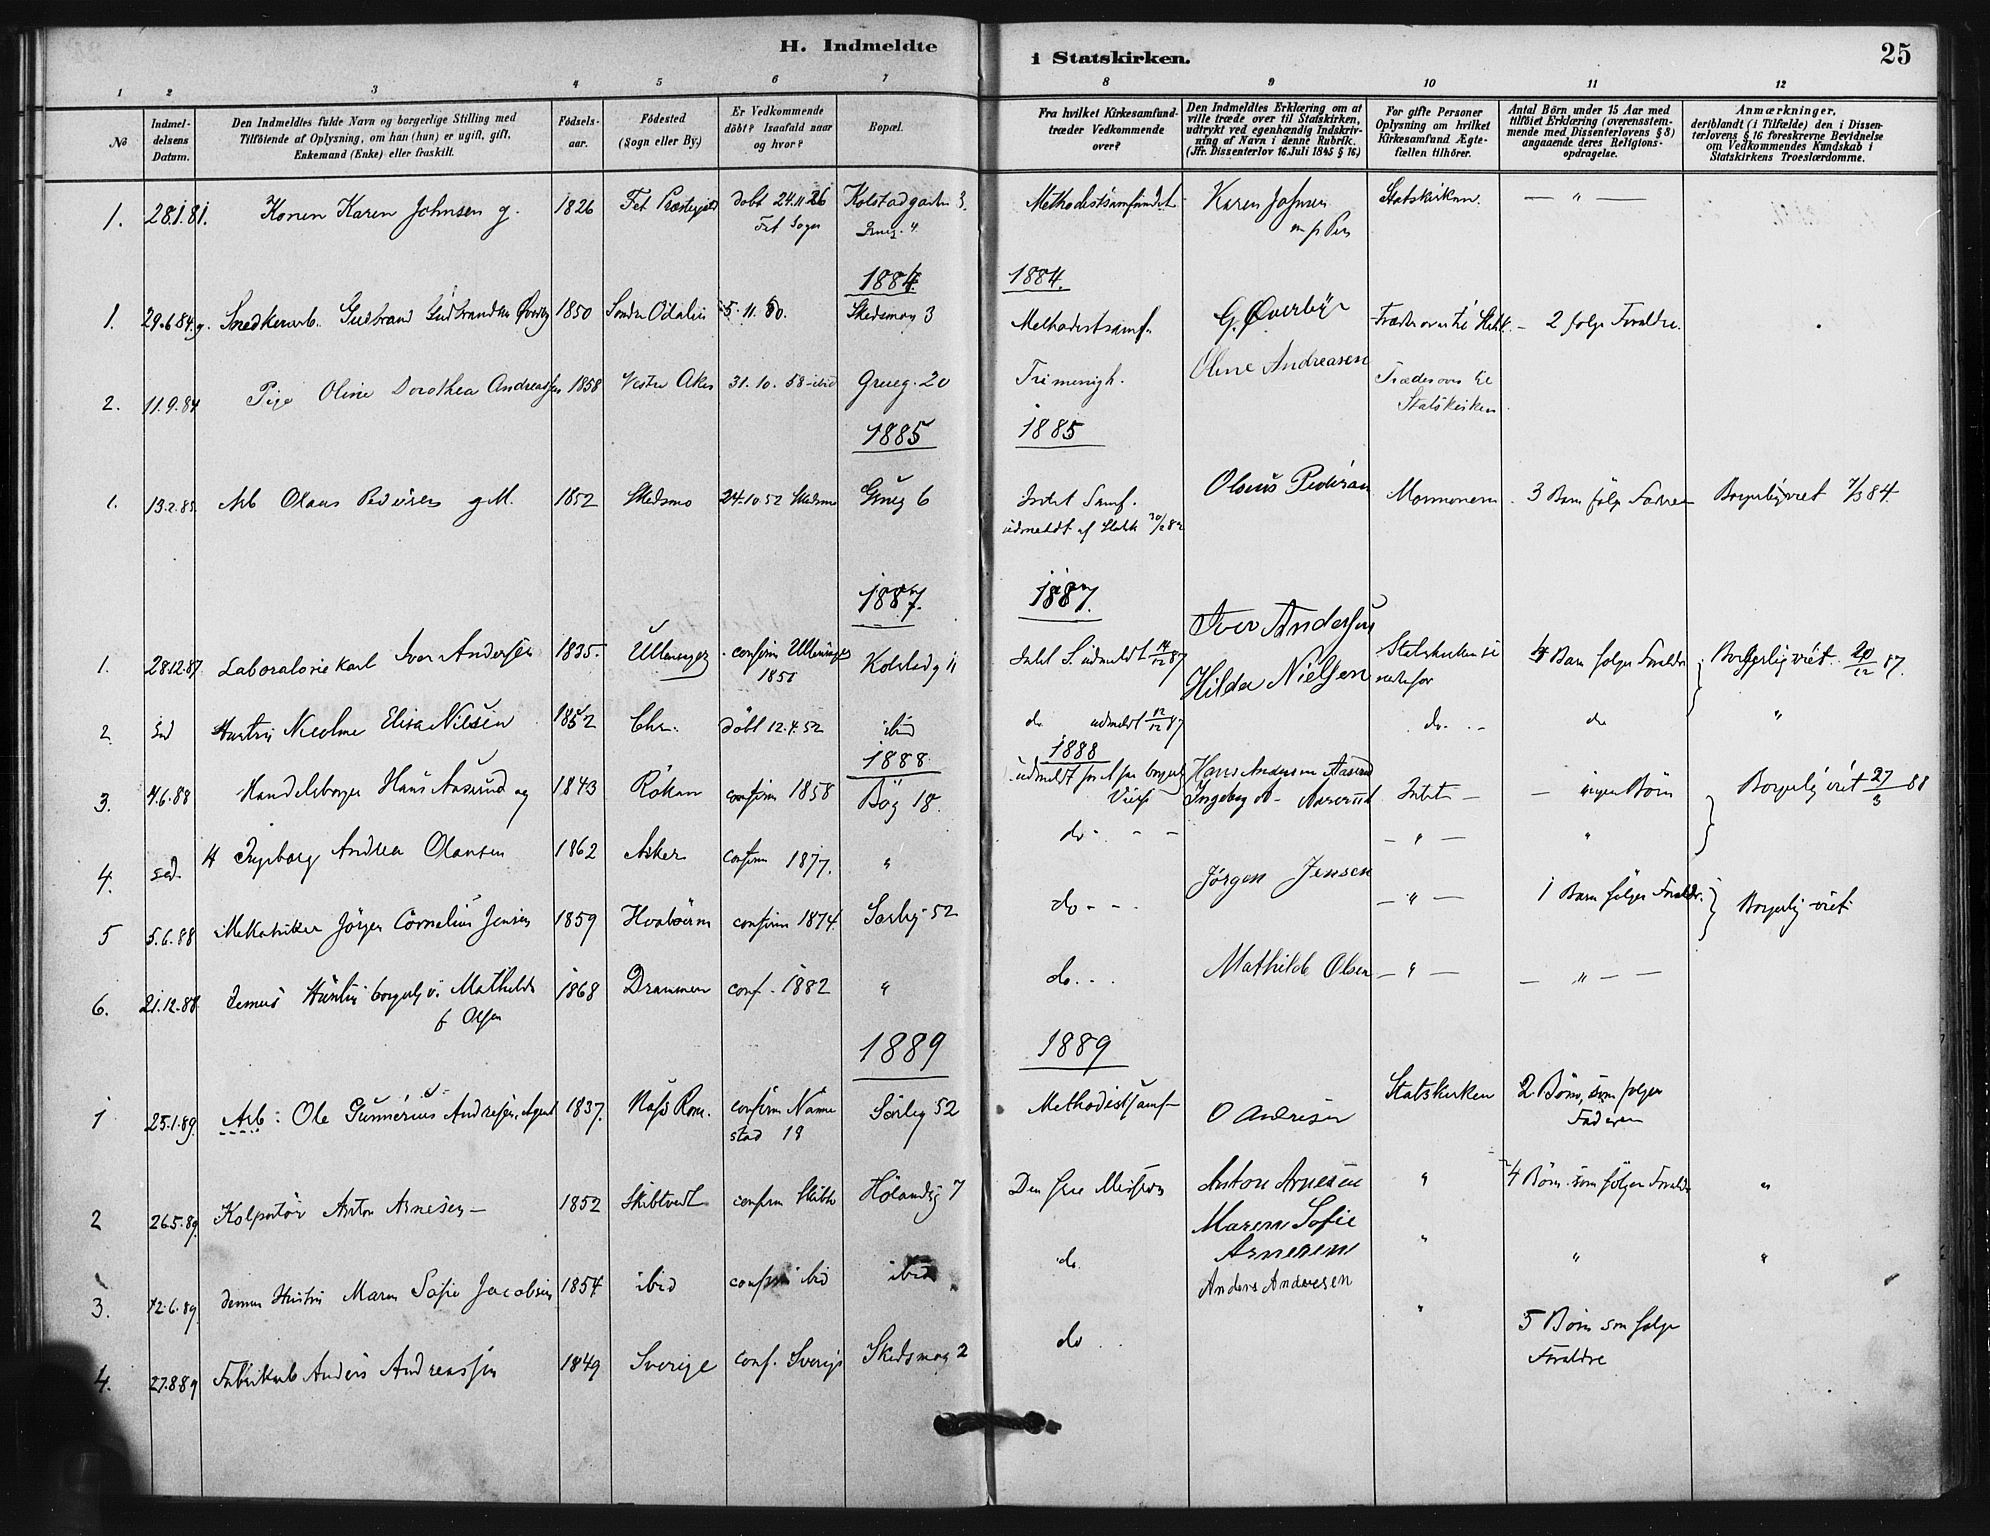 H. Indmeldte i Statskirken. 25
1 2 3 4 5 6 7 8 9 10 11 12
No
Indmel-
delsens
Datum.
Den Indmeldtes fulde Navn og borgerlige Stilling med
Tilföiende af Oplysning, om han (hun) er ugift, gift,
Enkemand (Enke) eller fraskilt.
Födsels-
aar.
Födested
(Sogn eller By.)
Er Vedkommende
döbt? Isaafald naar
og hvor?
Bopæl.
Fra hvilket Kirkesamfund
træder Vedkommende
over?
Den Indmeldtes Erklæring om at
ville træde over til Statskirken,
udtrykt ved egenhændig Indskriv-
ning af Navn i denne Rubrik.
(Jfr. Dissenterlov 16. Juli 1845 § 16)
For gifte Personer
Oplysning om hvilket
Kirkesamfund Ægte-
fællen tilhörer.
Antal Börn under 15 Aar med
tilföiet Erklæring (overensstem-
mende med Dissenterlovens § 8)
angaaende deres Religions-
opdragelse.
Anmærkninger,
deriblandt (i Tilfælde) den i Dissen-
terlovens § 16 foreskrevne Bevidnelse
om Vedkommendes Kundskab i
Statskirkens Troeslærdomme.
1. 28.1.81. Konen Karen Johnsen g. 1826 Fet Præstegjeld döbt 24.11.26 Kolstadgaden 3. Methodistsamfundet Karen Johnsen Statskirken. — " —
Fet Sogn
1884. 1884.
1. 29.6.84 Snedkerarb. Gulbrand Gulbrandsen Øverby 1850 Söndre Odalen 5.11.50. Skedsmog 3 Methodistsamf. G. Øverbÿe 2 følge Foraldre.
2. 11.9.84 Pige Oline Dorothea Andreassen 1858 Vestre Aker 31.10.58 ibid Grüeg. 20 Frimenigh. Oline Andreasen Træder over til
Statskirken
1885 1885
1. 13.2.85 Arb Olaus Pedersen g.M. 1852 Skedsmo 24.10.52 Skedsmo Grüeg 6 Intet Samf. Olaus Pedersen Mormonern 3 Børn følge Faderen Borgerligviet 7/3 84.
udmeldt af Statsk
1887. 1887.
1. 28.12.87 Laboratoriekarl Iver Andersen 1835. Ullensager confirm Ullensager Kolstadg 11 Intet S. udmeldt 14/12 87 Iver Andersen 4 Børn følge Foraldre Borgerlig viet 20/12 87.
1850
2. Hustru Nicoline Elise Nilsen 1852 Chr. döbt 12.4.52 ibid do udmeldt 12/12 87 Hilda Nielsen do do "
1888 1888
3. 4.6.88 Handelsborger Hans Aaserud og 1843 Röken confirm 1858 Bög 18. Hans Andersen Aaserud Intet — — ingen Börn Borgerlig viet 27/3 88
Ingeborg A. Aaserud
4. H Ingeborg Andrea Olausen 1862 Asker confirm 1877. " do - - - — " — "
5 5.6.88 Mekaniker Jörgen Cornelius Jensen 1859 confirm 1874. Sørlig 52 do - - Jörgen Jensen — " — 1 Barn følger Foraldr. Borgerlig viet
6. 21.12.88 dennes Hustru borgerlig v. Mathilde 1868 Drammen conf. 1882 " do. . . Mathilde Olsen — " — — " — —
f Olsen
1889 1889
1 25.1.89. Arb: Ole Gunnerius Andresen. Agent 1837. confirm Sørlig 52 Methodistsamf— O Andresen Statskirken 2 Börn, som følger
Faderen
2 26.5.89. Kolportör Anton Arnesen — 1852 Skibtvedt confirm Hølandsg 7 Den frie Mission Anton Arnesen " 4 Börn som følger Foraldre "
3. 12.6.89. dennes Hustru Maren Sofie Jacobsen 1854 ibid confirm ibid ibid do Maren Sofie " " "
Arnesen
4. 27.8.89 Anders Andreassen 1849 Sverige conf. Sverige Skedsmog 2 do . . Anders Andresen " 5 Börn som følge
Foraldre